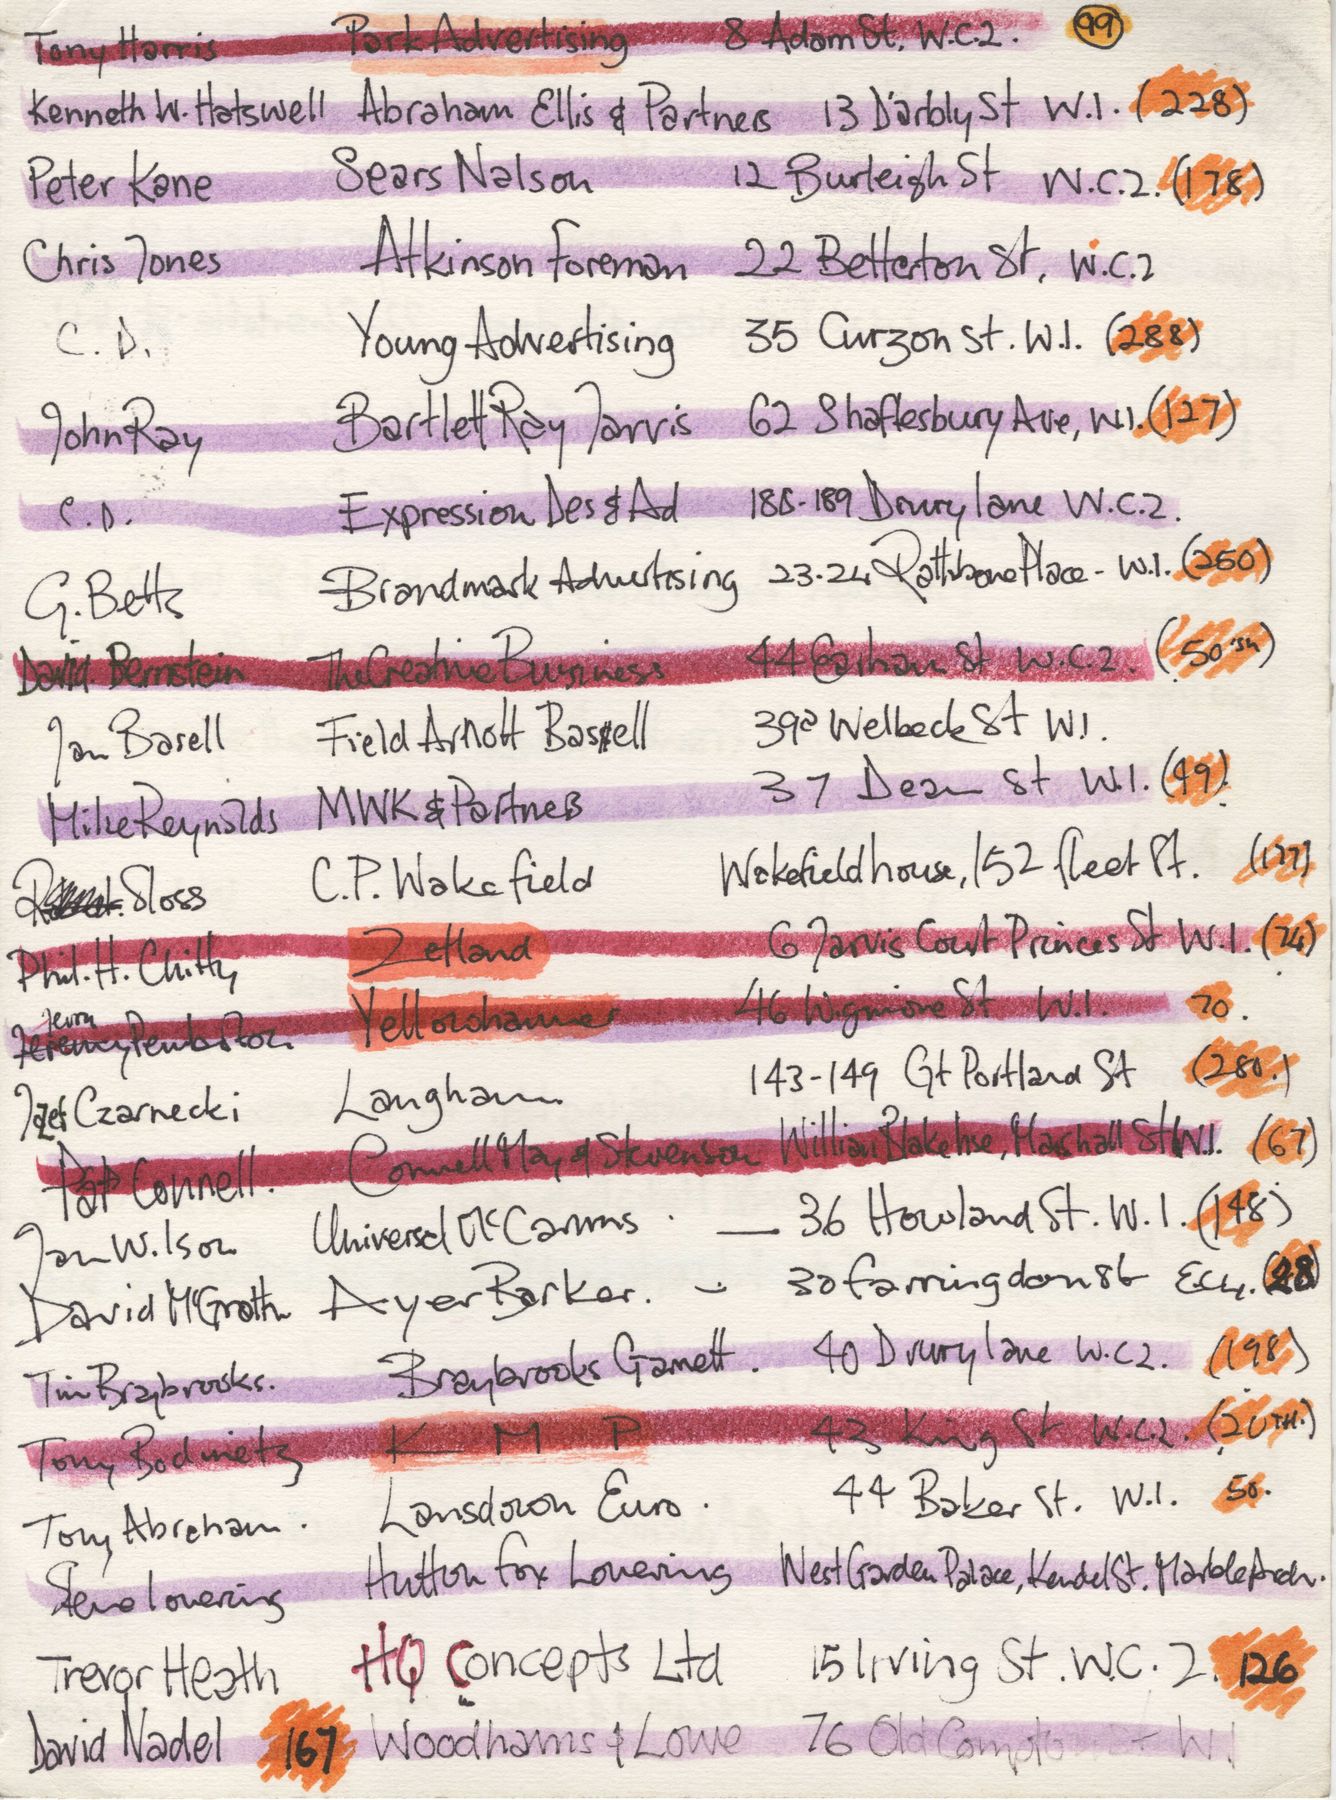 Tony Harris Park Advertising 8 Adam St. W.C.2. 99
Kenneth W. Hatswell Abraham Ellis & Partners 13 D'arbly St W.1. (228)
Peter Kane Sears Nalson 12 Burleigh St W.C.2. (178)
Chris Jones Atkinson Foreman 22 Betterton St, W.C.2
C. D. Young Advertising 35 Curzon St. W.1. (288)
John Ray Bartlett Ray Jarvis 62 Shaftesbury Ave, W.1. (127)
C.D. Expression Des & Ad 188-189 Drury lane W.C.2.
G. Betts Brandmark Advertising 23-24 Rathbone Place - W.1. (250)
David Bernstein The Creative Business 44 Earham St W.C.2. (50'ish)
Ian Basell Field Arnott Basell 39a Welbeck St W1.
Mike Reynolds MWK & Partners 37 Dean St W.1. (49)
Sloss C.P. Wakefield Wakefield house, 152 fleet St. (177)
Phil. H. Chitty Zetland 6 Jarvis Court Princes St W.1. (74)
Jerry Pemberton Yellowhammer 46 Wigmore St W.1. 70.
Jozef Czarnecki Langham 143-149 Gt Portland St (280.)
Pat Connell. Connell May & Stevenson William Blake hse, Marshall St W.1. (67)
Ian Wilson Universal McCanns. — 36 Howland St. W.1. (148)
David McGrath Ayer Barker. - 30 farringdon St EC4. (28)
Tim Braybrooks. Braybrooks Garnett. 40 Drury lane W.C2. (198)
Tony Bodinetz K M P 43 King St W.C.2. (20TH.)
Tony Abraham. Lansdown Euro. 44 Baker St. W.1. 50.
Steve lowering Hutton fox Lowering West Garden Palace, Kendel St. Marble Arch.
Trevor Heath HQ Concepts Ltd 15 Irving St. W.C.2. 126
David Nadel 167 Woodhams & Lowe 76 Old Compton St W1